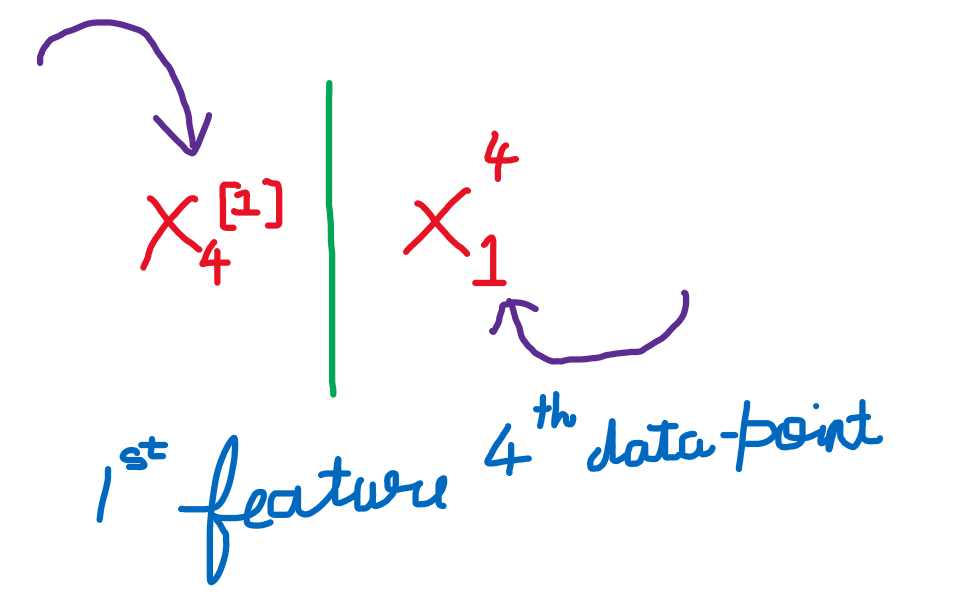 X₄^[1] | X₁⁴
1st feature 4th data-point